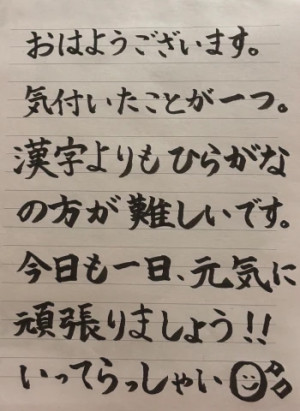 おはようございます。
気付いたことが一つ。
漢字よりもひらがな
の方が難しいです。
今日も一日、元気に
頑張りましょう!!
いってらっしゃい